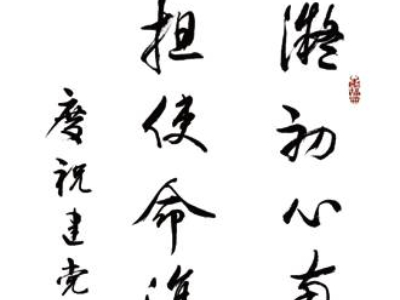 凝初心
担使命
慶祝建党